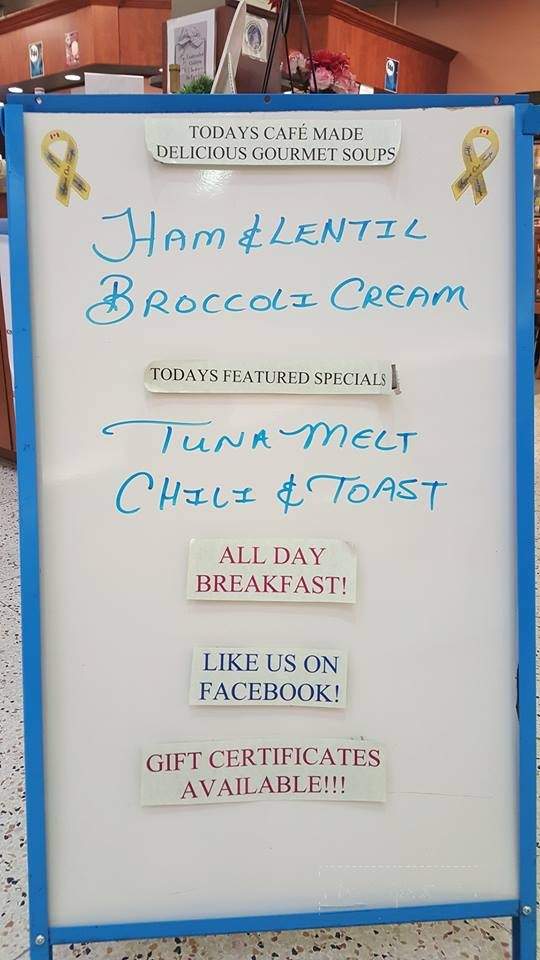 TODAYS CAFÉ MADE
DELICIOUS GOURMET SOUPS
HAM & LENTIL
BROCCOLI CREAM
TODAYS FEATURED SPECIALS
TUNA MELT
CHILI & TOAST
ALL DAY
BREAKFAST!
LIKE US ON
FACEBOOK!
GIFT CERTIFICATES
AVAILABLE!!!